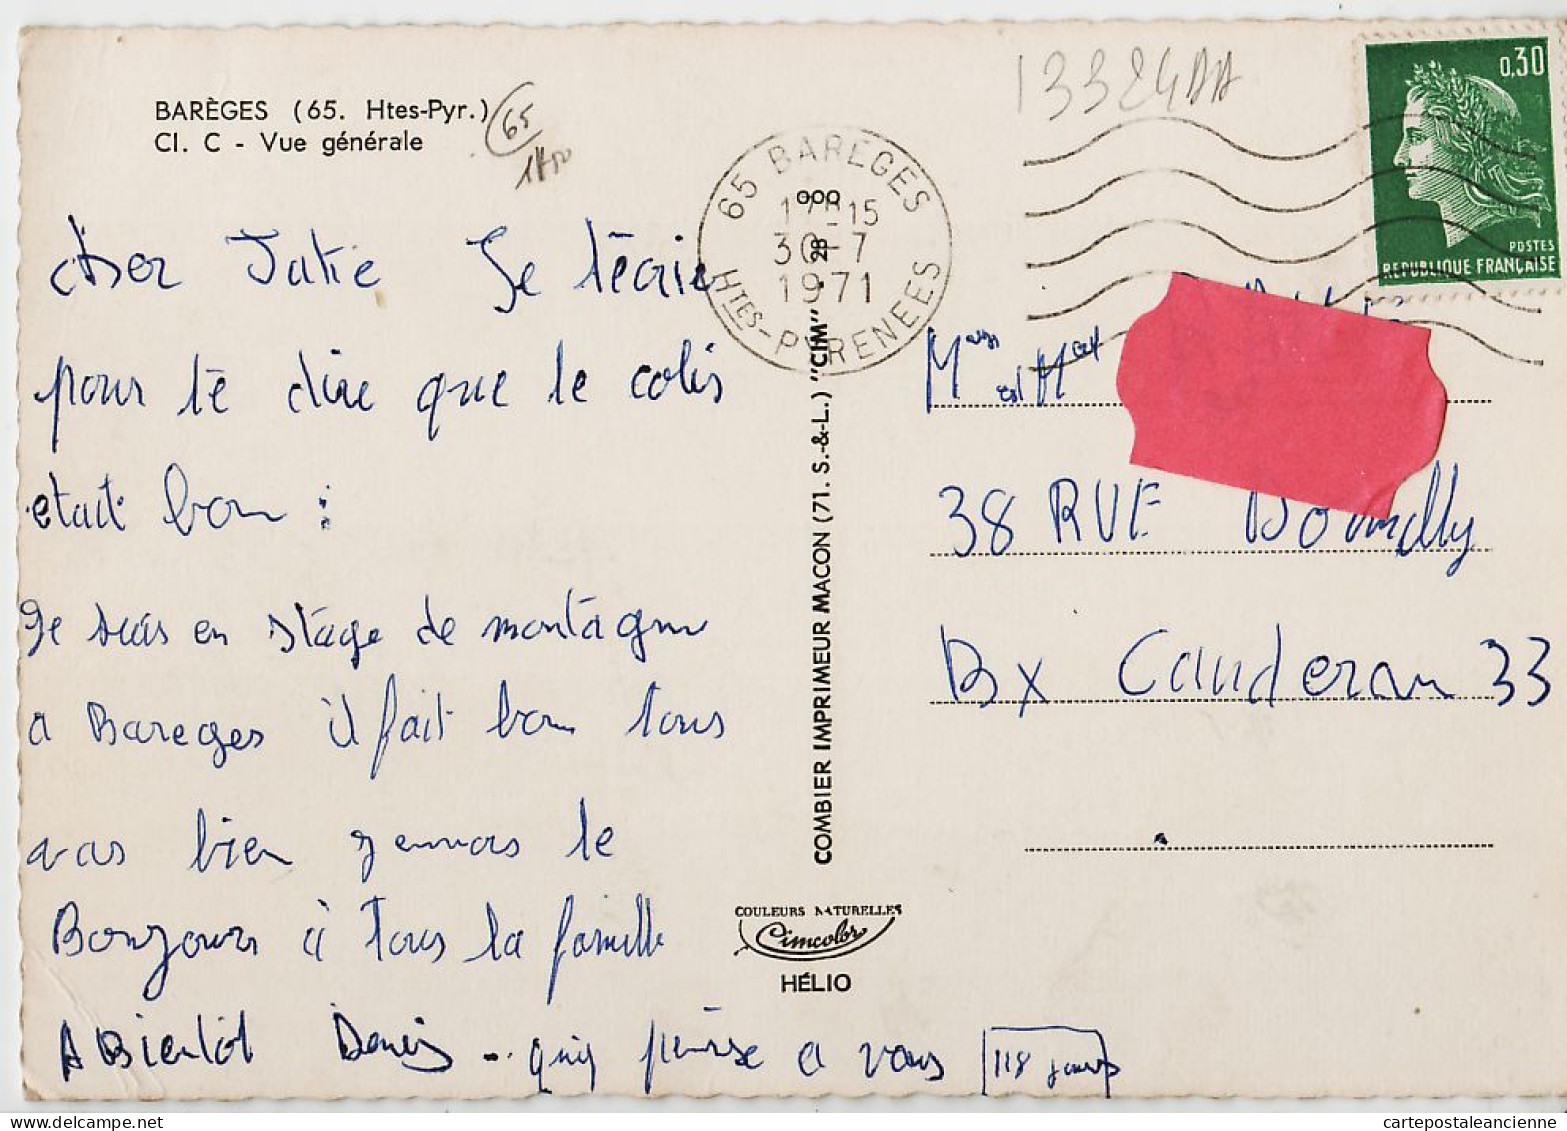 BARÈGES (65. Htes-Pyr.)
Cl. C - Vue générale
65
13324AA
65 BARÈGES
17H15
30-7
1971
Htes-PYRENEES
0,30
POSTES
REPUBLIQUE FRANÇAISE
cher Jatie Je técrie
pour te dire que le colis
etait bon :
Je suis en stage de montagne
a Bareges il fait bon tous
vas bien jenvois le
Bonjours à tous la famille
A Bientôt Denis - quis pense a vous 118 jours
COMBIER IMPRIMEUR MACON (71. S.-&-L.) "CIM"
COULEURS NATURELLES
Cimcolor
HÉLIO
38 RUE
Bx Cauderan 33
cartepostaleancienne